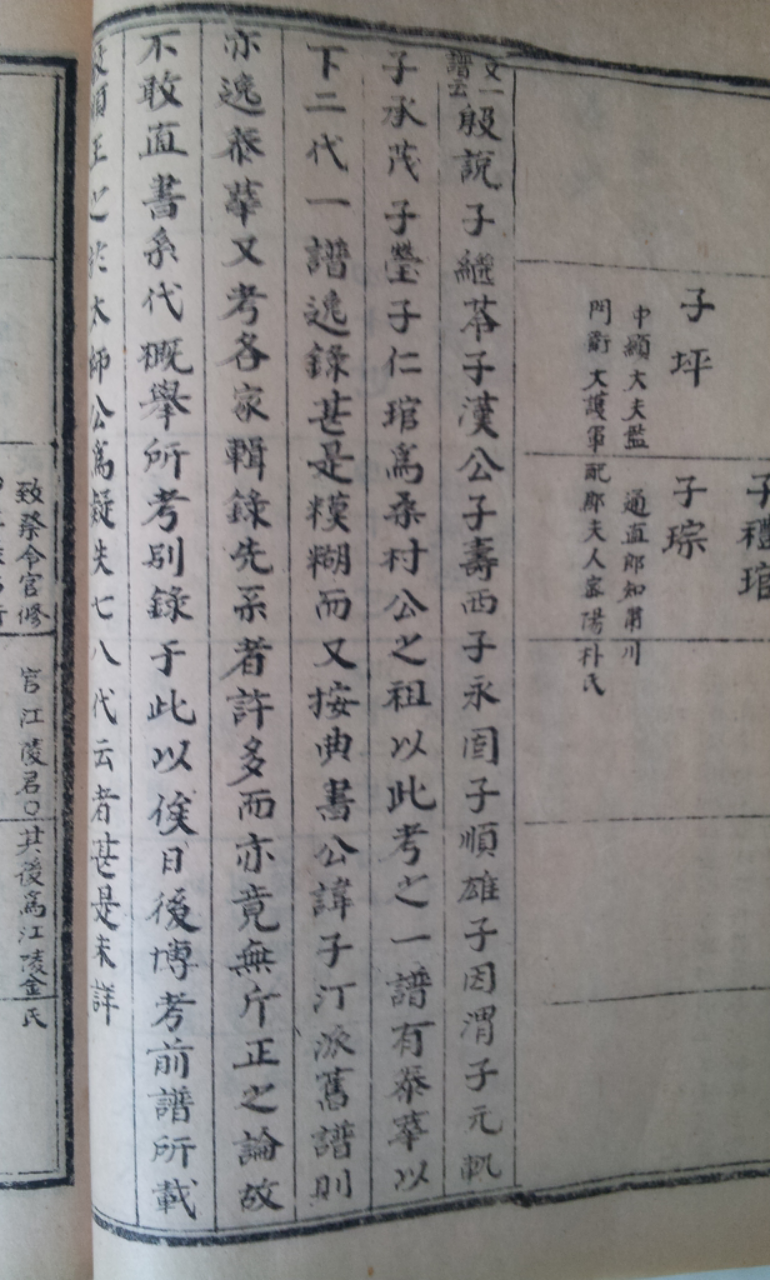 子禋琯
子坪
中顯大夫監
門衛大護軍配郡夫人密陽朴氏
子琮
通直郎知肅川
又一
譜云
殷說子繼苓子漢公子壽西子永固子順雄子因渭子元軌
子承茂子瑩子仁琯爲桑村公之祖以此考之一譜有泰華以
下二代一譜逸錄甚是糢糊而又按典書公諱子汀派舊譜則
亦逸泰華又考各家輯錄先系者許多而亦竟無斤正之論故
不敢直書系代槪舉所考別錄于此以俟日後博考前譜所載
王之於太師公爲疑佚七八代云者甚是未詳
致祭令官修
官江陵君○其後爲江陵金氏